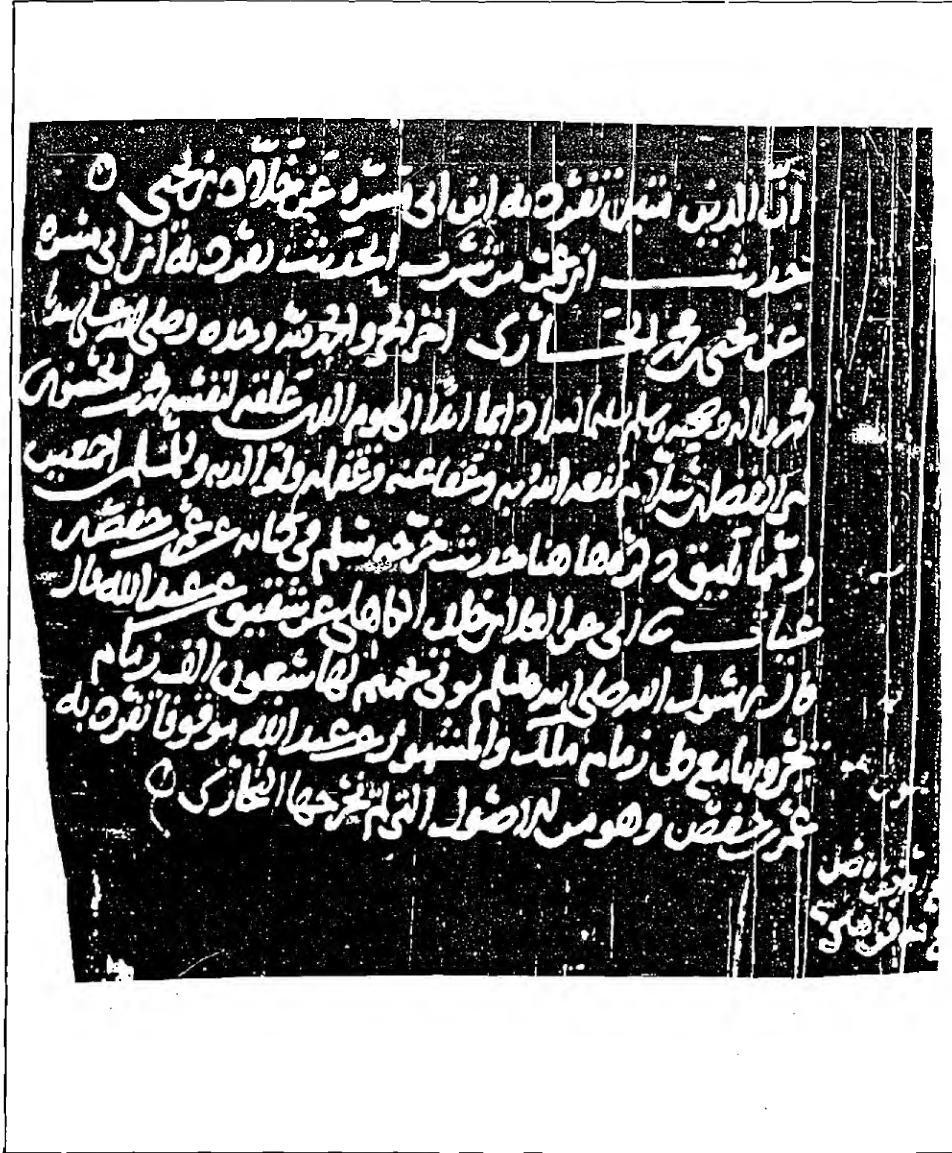 ان الدين متين تفرد به ابن ابي مسرة عن خلاد بن يحيى
حديث ابن عمر من شرب الحديث تفرد به ابن ابي مسرة
عن يحيى بن محمد الجاري اخر الجزو والحمد لله وحده وصلى الله على سيدنا
محمد واله وصحبه وسلم تسليما دايما ابدا الى يوم الدين علقه لنفسه محمد
نفعه الله به وعفا عنه وغفر له ولوالديه وللمسلمين اجمعين
ومما يليق ذكره هاهنا حديث خرجه مسلم في كتابه عن عمر بن حفص بن
غياث ثنا ابي عن العلا بن خالد الكاهلي عن شقيق عن عبد الله قال
قال رسول الله صلى الله عليه وسلم يوتى بجهنم لها سبعون الف زمام
يجرونها مع كل زمام ملك والمشهور عن عبد الله موقوفا تفرد به
عمر بن حفص وهو من الاصول التي لم يخرجها البخاري